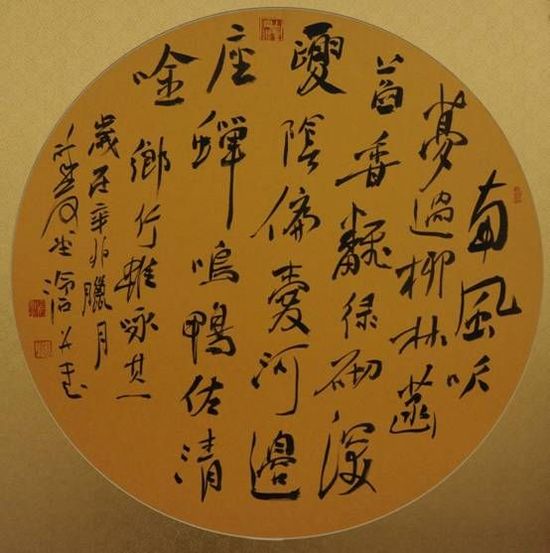 南風吹
夢過柳林菡
萏香飄綠砌深
夏陰偏愛河邊
座蟬鳴鴨佐清
唫鄉行雜咏其一
歲在辛卯臘月